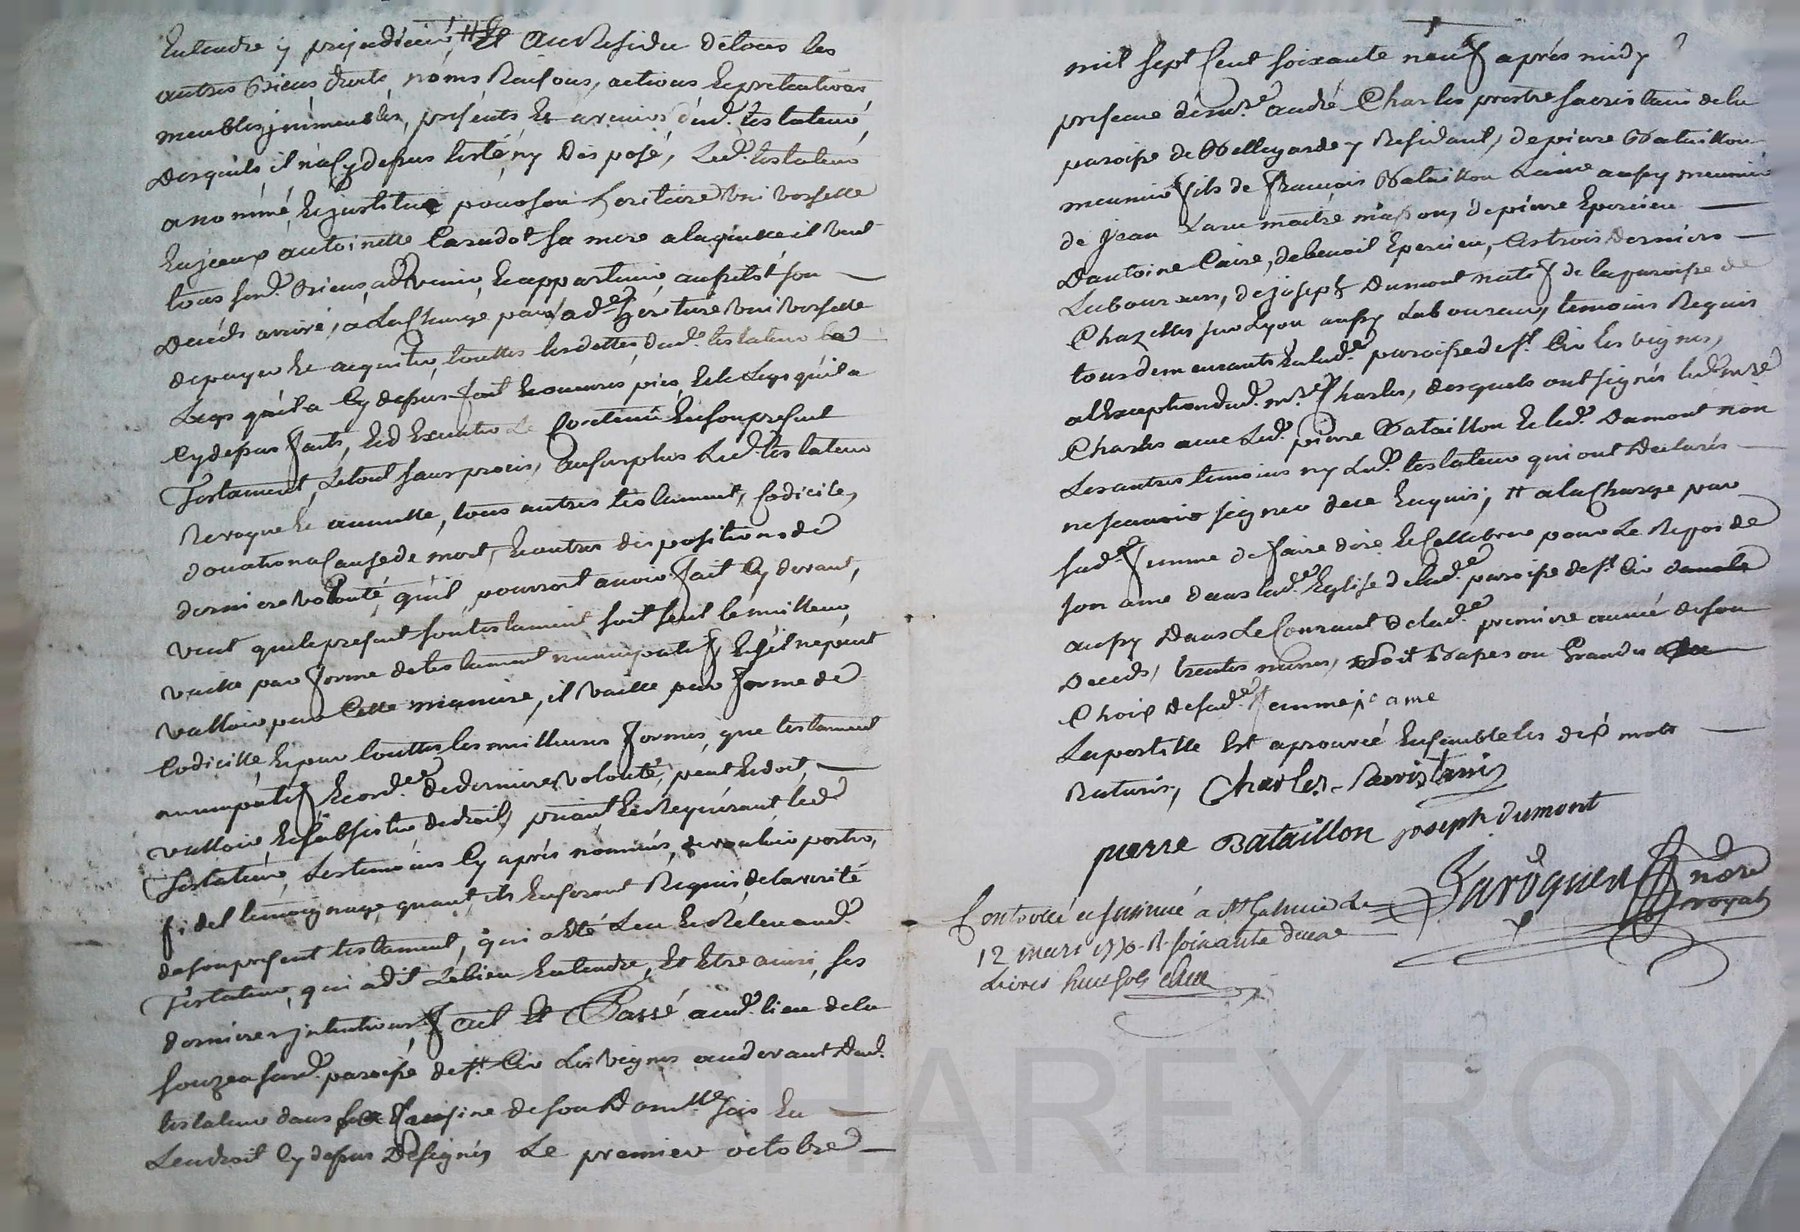 Entendre y prejudicier, # Et Au Residu de tous les
autres Biens droits, noms Raisons, actions Et pretentions
meubles jmmeubles, presents Et avenirs dud. testateur,
desquels il n'a Cy depus testé, ny Disposé, Led. testateur
a nommé, Et justitué pour son heritiere Universelle
Antoinette sa mere a laquelle il veut
tous sesd. Biens, advenir, Et appartenir, aussitôt son
Deceds arrivé, a La Charge par lad.e heritiere Universelle
de payer Et acquitter, touttes les dettes, dud. testateur
Legs qu'il a Cy depus fait Et oeuvres pies, Et le Legs qu'il a
Cy depus faits, Et d'Executer Le Contenu En son present
Testament, Le tout sans proces, Au surplus Led. testateur
Revoque Et annulle, tous autres testament, Codicile,
donation a Cause de mort, Et autres dispositions de
derniere volonté, qu'il pourroit avoir fait Cy devant,
veut que le present son testament soit seul le meilleur,
vaille par forme de testament nuncupatif, Et s'il ne peut
valloir par Cette maniere, il vaille par forme de
Codicille, Et par touttes les meilleures formes, que testament
nuncupatif Et ord.e de derniere volonté, peut Et doit,
valloir Et subsister de droit, priant Et Requerant led.
Testateur, Les temoins Cy aprés nommés, de vouloir porter,
fidel temoignage, quant ils En seront Requis, de la verité
de son present testament, qui a Eté Leu Et Releu aud.
Testateur, qui a dit Le bien Entendre, Et Etre ainsi, ses
dernieres jntentions, fait Et Passé aud. lieu de la
Souzea susd. paroisse de St. Cir Les Vignes au devant dud.
testateur dans la Cuisine de son Domille sis En
Lendroit Cy depus Designés Le premier octobre
mil sept Cent soixante neuf aprés midy
presence de mre. andré Charles prestre sacristain de la
paroisse de Bellegarde y Residant, de pierre Bataillon
meunier fils de francois Bataillon Laine aussy meunier
de Jean maitre masson, de pierre Epercieu
d'antoine Caire, de benoit Epercieu, Ces trois derniers
Laboureurs, de joseph Dumont natif de la paroisse de
Chazelles sur Lyon aussy Laboureur, temoins Requis
tous demeurants En lad.e paroisse de St. Cir les vignes,
a l'Exception dud. mre. Charles, desquels ont signés led. mre
Charles avec Led. pierre Bataillon Et led. Dumont non
Les autres temoins ny Led. testateur qui ont Declarés
ne scavoir signer de ce Enquis; # a la Charge par
sad. femme de faire dire Et Cellebrer pour Le Repos de
son ame dans lad. Eglise de lad.e paroisse de St. Cir
aussy Dans Le Courant de lad.e premiere année de son
Deceds, trentes messes, soit Basses ou Grandes au
Choix de sad.e femme, ame
La postille Est aprouvé Ensemble les dix mots
Raturés, Charles Sacristain
pierre Bataillon joseph dumont
Jaroquen nore
royal
Controllé et jnsinué a St Galmier Le
12 mars 1770. R. soixante deux
Livres huit sols